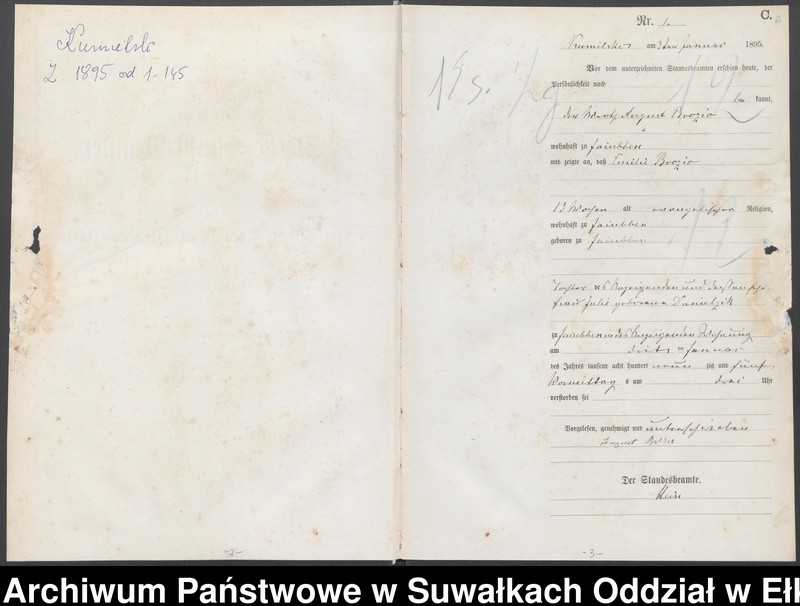 Kumielsk
Z. 1895 od 1-145
-2-
C.
Nr. 1.
Kumilsko am 3ten Januar 1895.
Vor dem unterzeichneten Standesbeamten erschien heute, der
Persönlichkeit nach
be kannt,
der Wirth August Brozio
wohnhaft zu Faiubben
und zeigte an, daß Emilie Brozio
13 Wochen alt evangelischer Religion,
wohnhaft zu Faiubben
geboren zu Faiubben
Tochter des Anzeigenden und dessen Ehe-
frau Julie geborenen Danielzik
zu Faiubben in des Anzeigenden Wohnung
am dritten Januar
des Jahres tausend acht hundert neun zig und fünf
Vormittag s um drei Uhr
verstorben sei
Vorgelesen, genehmigt und unterschrieben
August
Der Standesbeamte.
Hein
-3-
Archiwum Państwowe w Suwałkach Oddział w Ełk